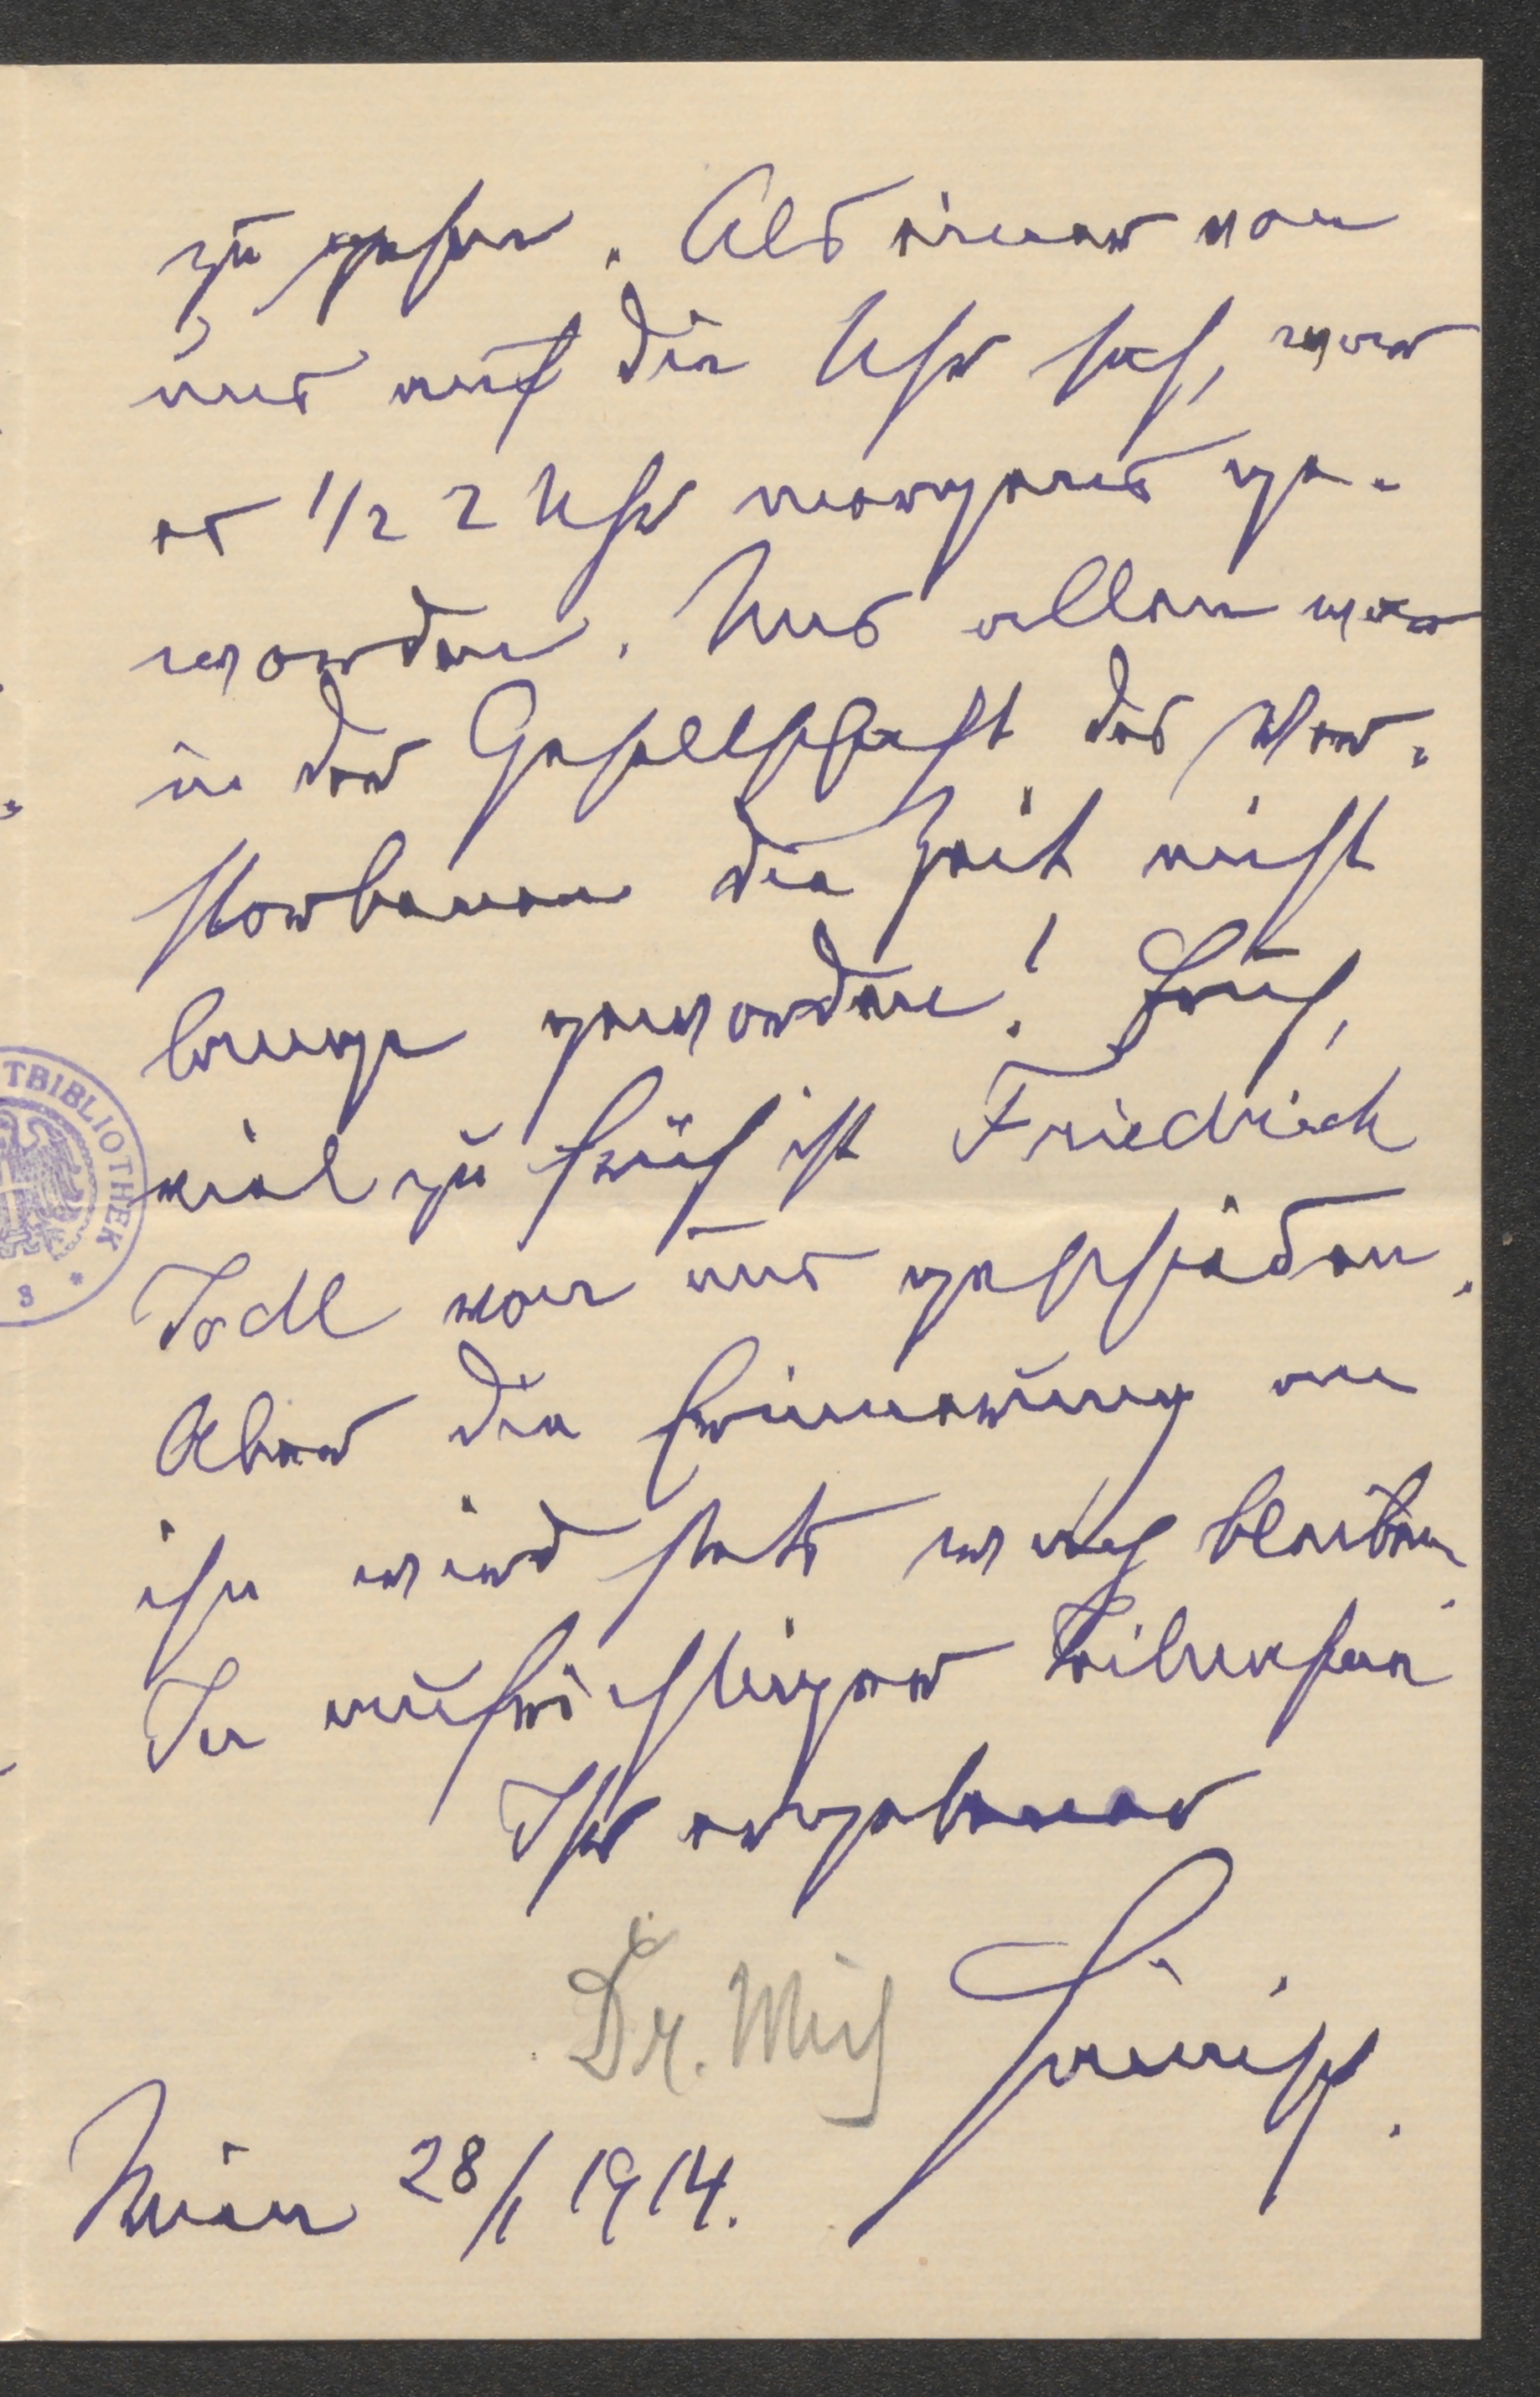 zu gehen. Als einer von
uns auf die Uhr sah, war
es 1/2 2 Uhr morgens ge-
worden. Uns allen war
in der Gesellschaft des Ver-
storbenen die Zeit nicht
lange geworden! Früh,
viel zu früh ist Friedrich
Jodl von uns geschieden.
Aber die Erinnerung an
ihn wird stets wach bleiben.
In aufrichtiger Teilnahme
Ihr ergebener
Dr. Mich
Hainisch.
Wien 28/1 1914.
TBIBLIOTHEK